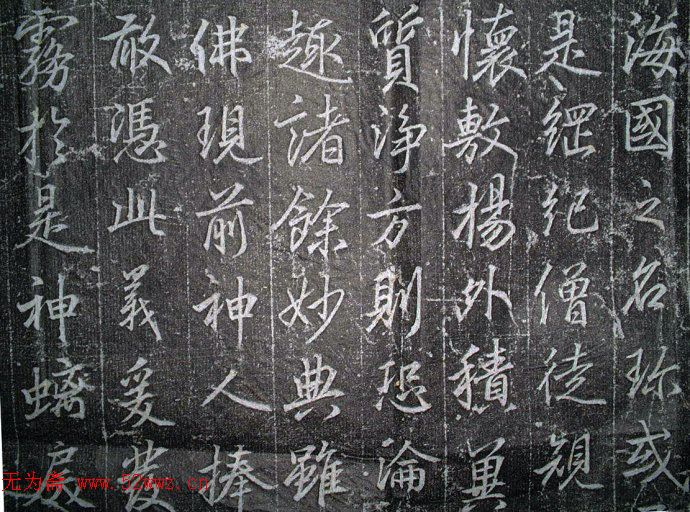 海國之名珎或
是綱紀僧徒規
懷敷揚外積
質淨方則恐論
趣諸餘妙典雖
佛現前神人捧
敢憑此義爰發
霧於是神螭戾
无为斋 www.52wwz.cn